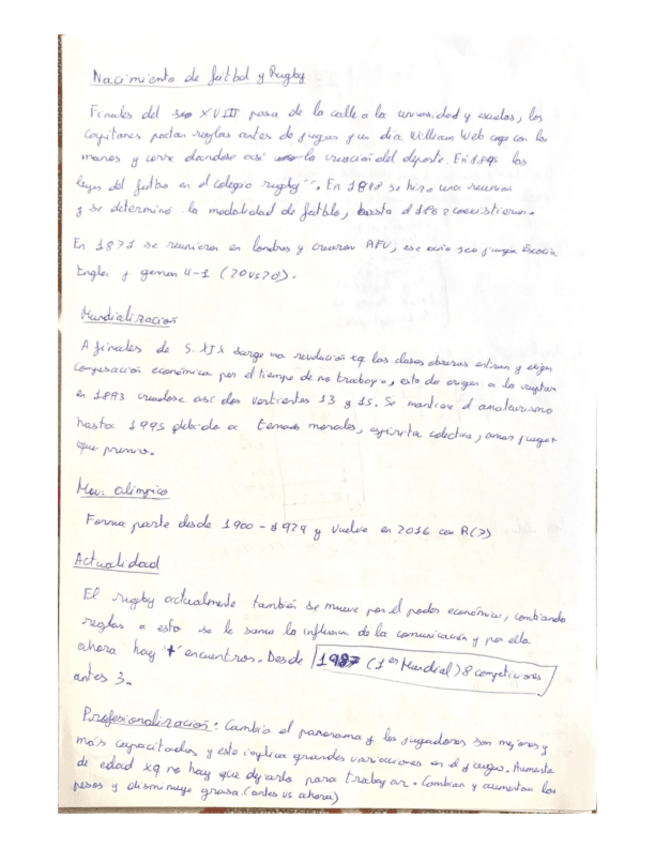 Nacimiento de fútbol y Rugby
Finales del XVIII pasa de la calle a la universidad y escuelas, los
capitanes pactan reglas antes de jugar y un día William Web coge con las
manos y corre dandose así la creación del deporte. En 1845 las
leyes del futbo en el colegio rugby". En 1848 se hizo una reunion
y se determinó la modalidad de futblo, hasta el 1862 coexistieron.
En 1871 se reunieron en londres y crearon AFU, ese año se juega Escocia
Ingla. y ganan 4-1 (20vs20).
Mundialización
A finales de S. XIX surge una revolución xq las clases obreras entran y exigen
compensación económica por el tiempo de no trabajo, esto da origen a la ruptura
en 1893 creandose así dos vertientes 13 y 15. Se mantiene el amateurismo
hasta 1995 debido a temas morales, espíritu colectivo, amor juego +
que premio.
Mov. olímpico
Forma parte desde 1900 - 1924 y vuelve en 2016 con R(7)
Actualidad
El rugby actualmente también se mueve por el poder económico, cambiando
reglas a esto se le suma la influen. de la comunicación y por ello
ahora hay + encuentros. Desde 1987 (1er Mundial) 8 competiciones
antes 3.
Profesionalización: Cambia el panorama y los jugadores son mejores y
más capacitados y esto implica grandes variaciones en el juego. Aumenta
de edad xq no hay que dejarlo para trabajar. Cambian y aumentan los
pesos y disminuye grasa. (antes vs ahora)